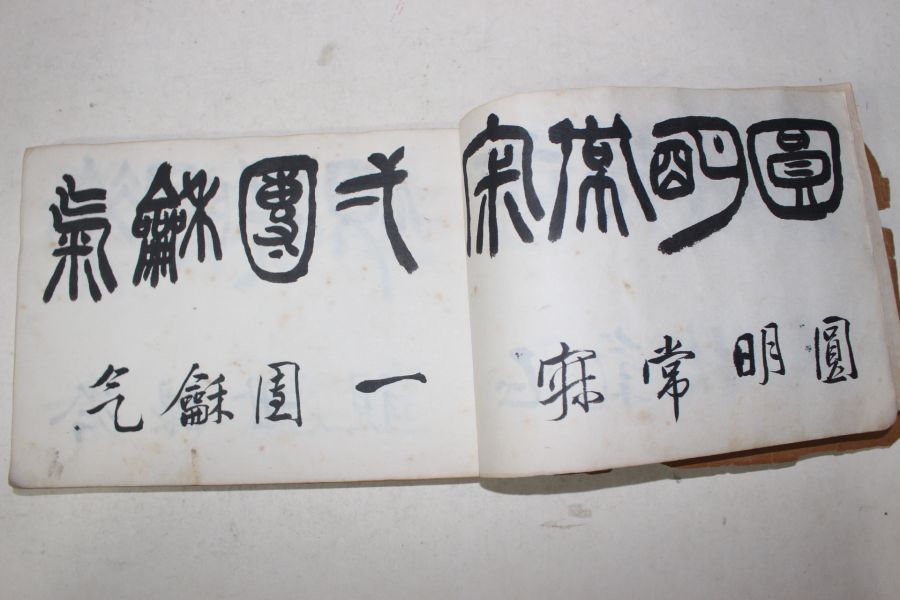 圓明常寂
圓明常寂
弌團龢氣
一團龢气